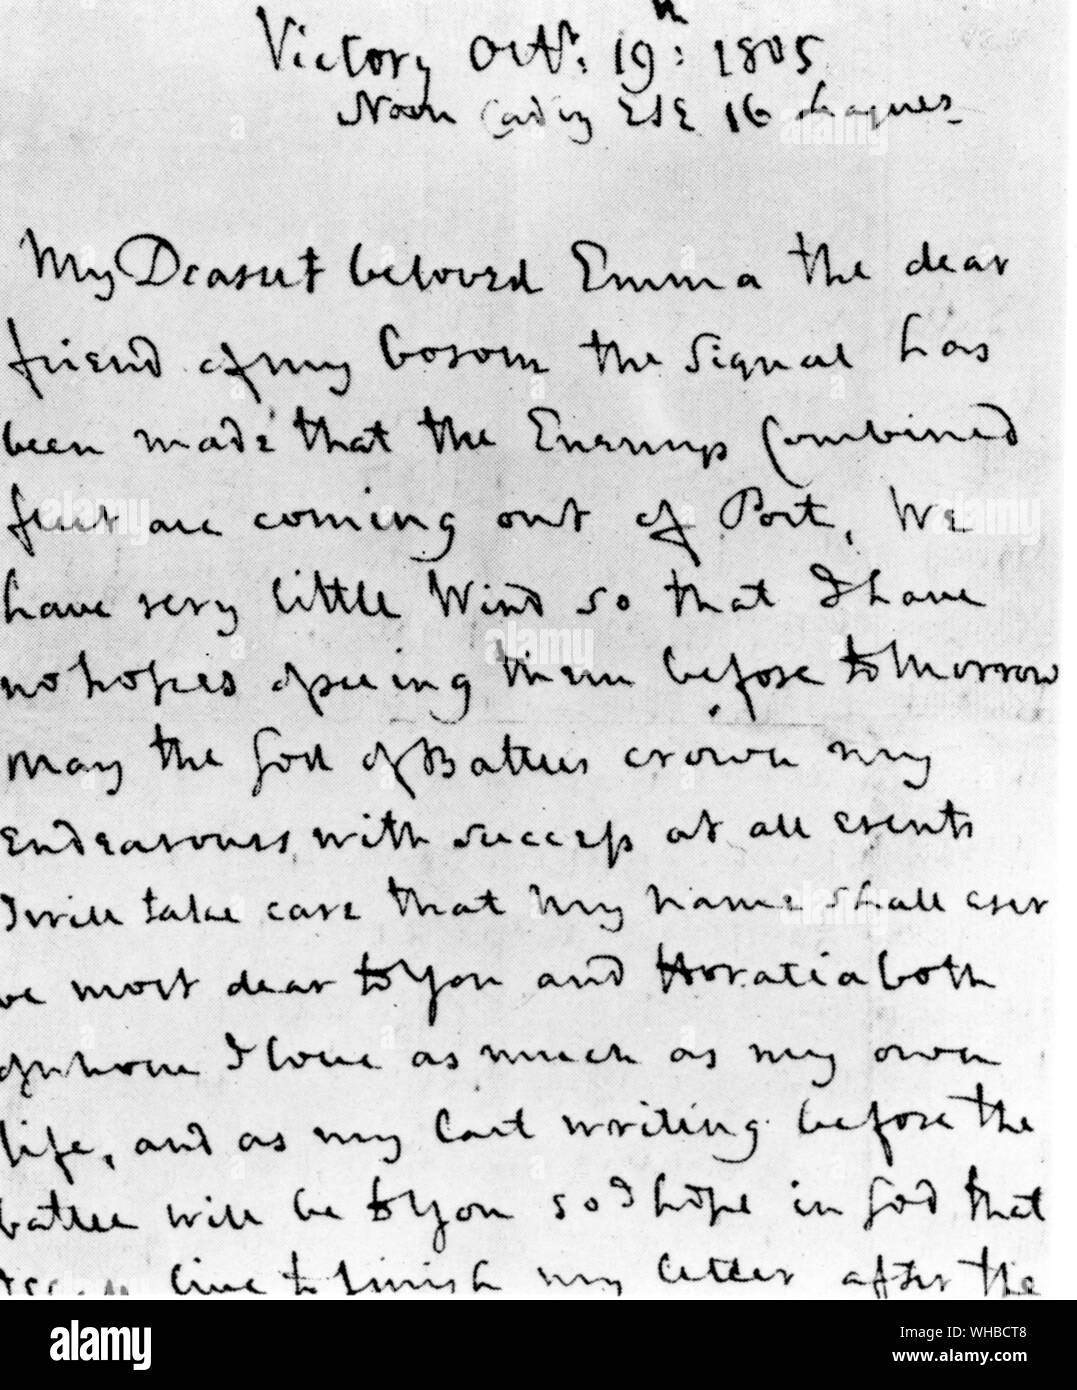 Victory Octr: 19th: 1805
Noon Cadiz ESE 16 Leagues
My Dearest beloved Emma the dear
friend of my bosom the Signal has
been made that the Enemys Combined
fleet are coming out of Port, We
have very little Wind so that I have
no hopes of seeing them before tomorrow
May the God of Battles crown my
Endeavours with success at all events
I will take care that my name shall ever
be most dear to You and Horatia both
of whom I love as much as my own
life, and as my last writing before the
battle will be to You so I hope in God that
I shall live to finish my letter after the
alamy
Image ID: WHBCT8
www.alamy.com